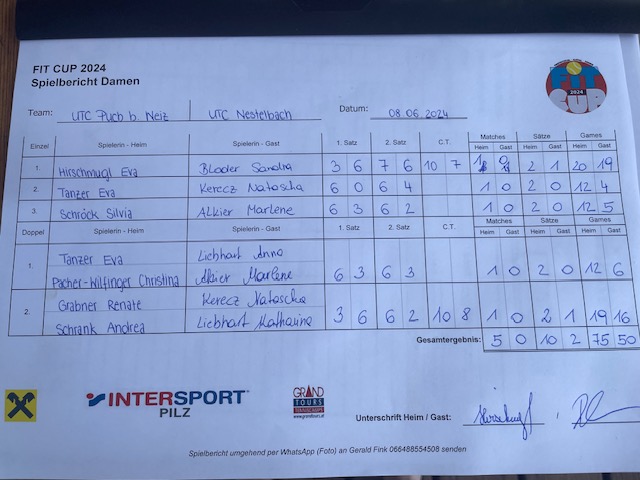 FIT CUP 2024
Spielbericht Damen
FIT
2024
CUP
Team: UTC Puch b. Weiz UTC Nestelbach Datum: 08.06.2024
Einzel Spielerin - Heim Spielerin - Gast 1. Satz 2. Satz C.T. Matches Sätze Games
Heim Gast Heim Gast Heim Gast
1. Hirschmugl Eva Bloder Sandra 3 6 7 6 10 7 1 0 2 1 20 19
2. Tanzer Eva Kerecz Natascha 6 0 6 4 1 0 2 0 12 4
3. Schröck Silvia Alkier Marlene 6 3 6 2 1 0 2 0 12 5
Doppel Spielerin - Heim Spielerin - Gast 1. Satz 2. Satz C.T. Matches Sätze Games
Heim Gast Heim Gast Heim Gast
1. Tanzer Eva Liebhart Anna
Pacher-Wilfinger Christina Alkier Marlene 6 3 6 3 1 0 2 0 12 6
2. Grabner Renate Kerecz Natascha
Schrank Andrea Liebhart Katharina 3 6 6 2 10 8 1 0 2 1 19 16
Gesamtergebnis: 5 0 10 2 75 50
INTERSPORT
PILZ
GRAND
TOURS
Unterschrift Heim / Gast:
Spielbericht umgehend per WhatsApp (Foto) an Gerald Fink 066488554508 senden